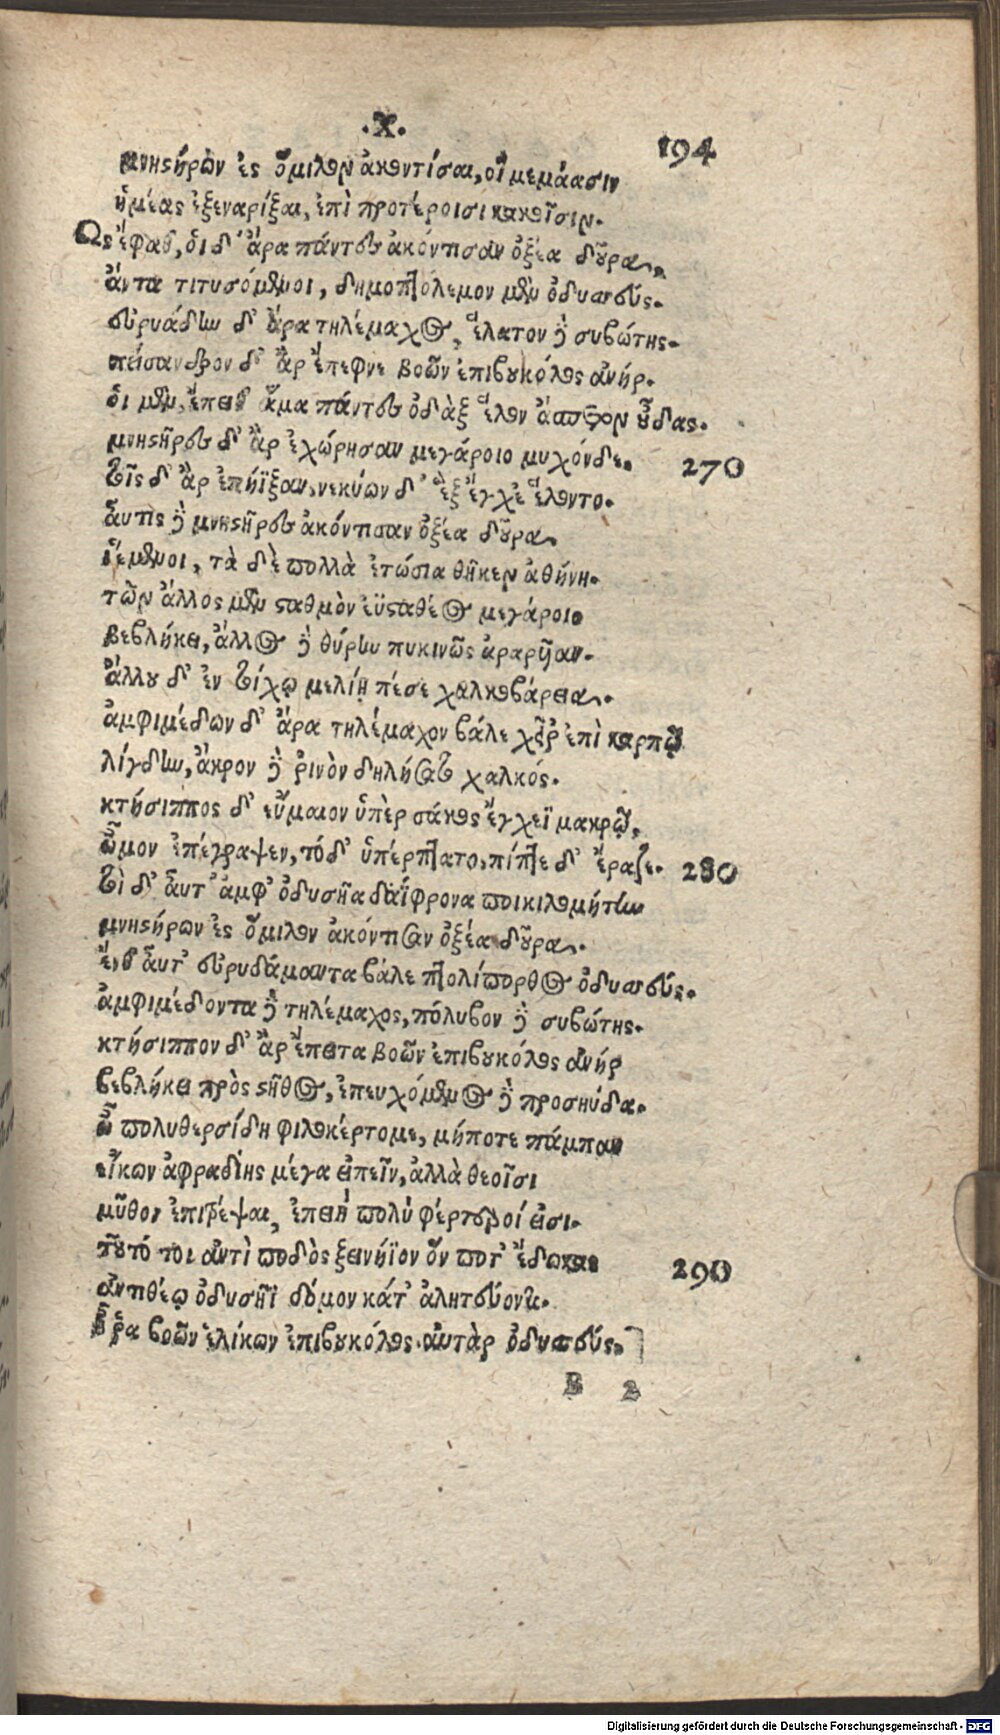 .Χ.
194
μνηστήρων ἐς ὅμιλον ἀκοντίσαι, οἳ μεμάασιν
ἡμέας ἐξεναρίξαι, ἐπὶ προτέροισι κακοῖσιν.
Ως ἔφαθ, ὁι δ' ἄρα πάντες ἀκόντισαν ὀξέα δοῦρα,
ἄντα τιτυσκόμενοι, δημοπτόλεμον μὲν ὀδυσσεύς.
εὐρυάδην δ' ἄρα τηλέμαχος, ἔλατον δὲ συβώτης.
πείσανδρον δ' ἂρ ἔπεφνε βοῶν ἐπιβουκόλος ἀνήρ.
ὁι μὲν ἔπειθ ἅμα πάντες ὀδὰξ ἕλον ἄασπετον οὖδας.
μνηστῆρες δ' ἂρ ἐχώρησαν μεγάροιο μυχόνδε. 270
τοῖς δ' ἂρ ἐπήϊξαν, νεκύων δ' ἒξ ἔγχε ἕλοντο.
ἆυτις δὲ μνηστῆρες ἀκόντισαν ὀξέα δοῦρα,
ἱέμενοι, τὰ δὲ πολλὰ ἐτώσια θῆκεν ἀθήνη.
τῶν ἄλλος μὲν σταθμὸν ἐϋσταθέος μεγάροιο
βεβλήκει, ἄλλος δὲ θύρην πυκινῶς ἀραρῆαν.
ἄλλου δ' ἐν τείχῳ μελίη πέσε χαλκοβάρεια.
ἀμφιμέδων δ' ἄρα τηλέμαχον βάλε χεῖρ ἐπὶ καρπῷ
λίγδην, ἄκρον δὲ ῥινὸν δηλήσατο χαλκός.
κτήσιππος δ' εὔμαιον ὑπὲρ σάκος ἔγχεϊ μακρῷ,
ὦμον ἐπέγραψεν, τό δ' ὑπέρπτατο, πίπτε δ' ἔραζε. 280
τοὶ δ' ἆυτ' ἀμφ' ὀδυσῆα δαΐφρονα ποικιλομήτην
μνηστήρων ἐς ὅμιλον ἀκόντισαν ὀξέα δοῦρα,
ἔνθ ἆυτ' εὐρυδάμαντα βάλε πτολίπορθος ὀδυσσεύς.
ἀμφιμέδοντα δὲ τηλέμαχος, πόλυβον δὲ συβώτης.
κτήσιππον δ' ἂρ ἔπειτα βοῶν ἐπιβουκόλος ἀνήρ
βεβλήκει πρὸς στῆθος, ἐπευχόμενος δὲ προσηύδα.
ὦ πολυθερσίδη φιλοκέρτομε, μήποτε πάμπαν
εἴκων ἀφραδίης μέγα εἰπεῖν, ἀλλὰ θεοῖσι
μῦθον ἐπιτρέψαι, ἐπειὴ πολὺ φέρτεροί εἰσι.
τοῦτό τοι ἀντὶ ποδὸς ξεινήϊον ὅν ποτ' ἔδωκας 290
ἀντιθέῳ ὀδυσῆϊ δόμον κάτ' ἀλητεύοντι.
ἦ ῥα βοῶν ἑλίκων ἐπιβουκόλος. ἀυτὰρ ὀδυσσεύς,
B 2
Digitalisierung gefördert durch die Deutsche Forschungsgemeinschaft - DFG